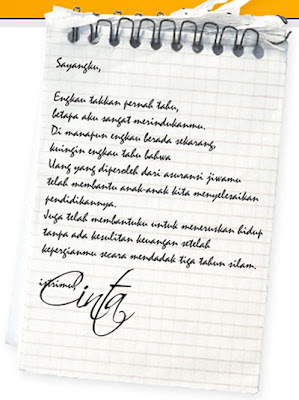 Sayangku,
Engkau takkan pernah tahu,
betapa aku sangat merindukanmu.
Di manapun engkau berada sekarang,
kuingin engkau tahu bahwa
Uang yang diperoleh dari asuransi jiwamu
telah membantu anak-anak kita menyelesaikan
pendidikannya.
Juga telah membantuku untuk meneruskan hidup
tanpa ada kesulitan keuangan setelah
kepergianmu secara mendadak tiga tahun silam.
istrimu,
Cinta